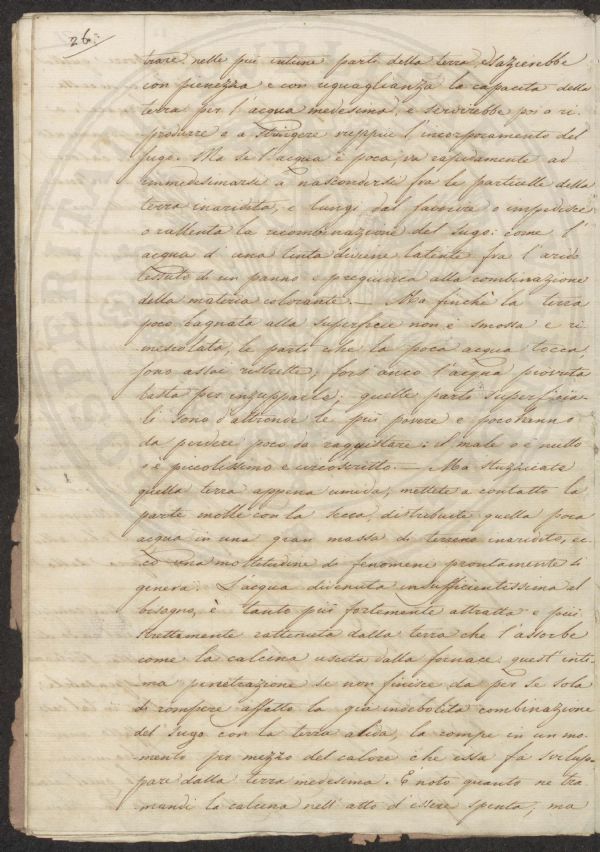 26.
trare nelle più intime parti della terra sazierebbe
con pienezza e con eguaglianza la capacità della
terra per l'acqua medesima, e servirebbe poi o ri-
produrre e a stringere seppiù l'incorporamento del
sugo. Ma se l'acqua è poca, va rapidamente ad
immedesimarsi a nascondersi fra le particelle della
terra inaridita, e lungi dal favorire o impedisce
o rallenta la ricombinazione del sugo: come l'
acqua d'una tinta diviene latente fra l'arido
tessuto di un panno e pregiudica alla combinazione
della materia colorante. — Ma finchè la terra
poco bagnata alla superficie non è smossa e ri-
mescolata, le parti che la poca acqua tocca,
sono assai ristrette; fors'anco l'acqua piovuta
basta per inzupparle; quelle parti superficia-
li sono d'altronde le più povere e poco hanno
da perdere poco da racquistare: il male o è nullo
o è piccolissimo e circoscritto. — Ma stuzzicate
quella terra appena umida, mettete a contatto la
parte molle con la secca, distribuite quella poca
acqua in una gran massa di terreno inaridito, ec-
co una moltitudine di fenomeni prontamente si
genera. L'acqua divenuta insufficientissima al
bisogno, è tanto più fortemente attratta e più
strettamente rattenuta dalla terra che l'assorbe
come la calcina uscita dalla fornace quest'inti-
ma penetrazione se non finisce da per se sola
di rompere affatto la già indebolita combinazione
del sugo con la terra alida, la rompe in un mo-
mento per mezzo del calore che essa fa svilup-
pare dalla terra medesima. È noto quanto ne tra
mandi la calcina nell'atto d'essere spenta; ma